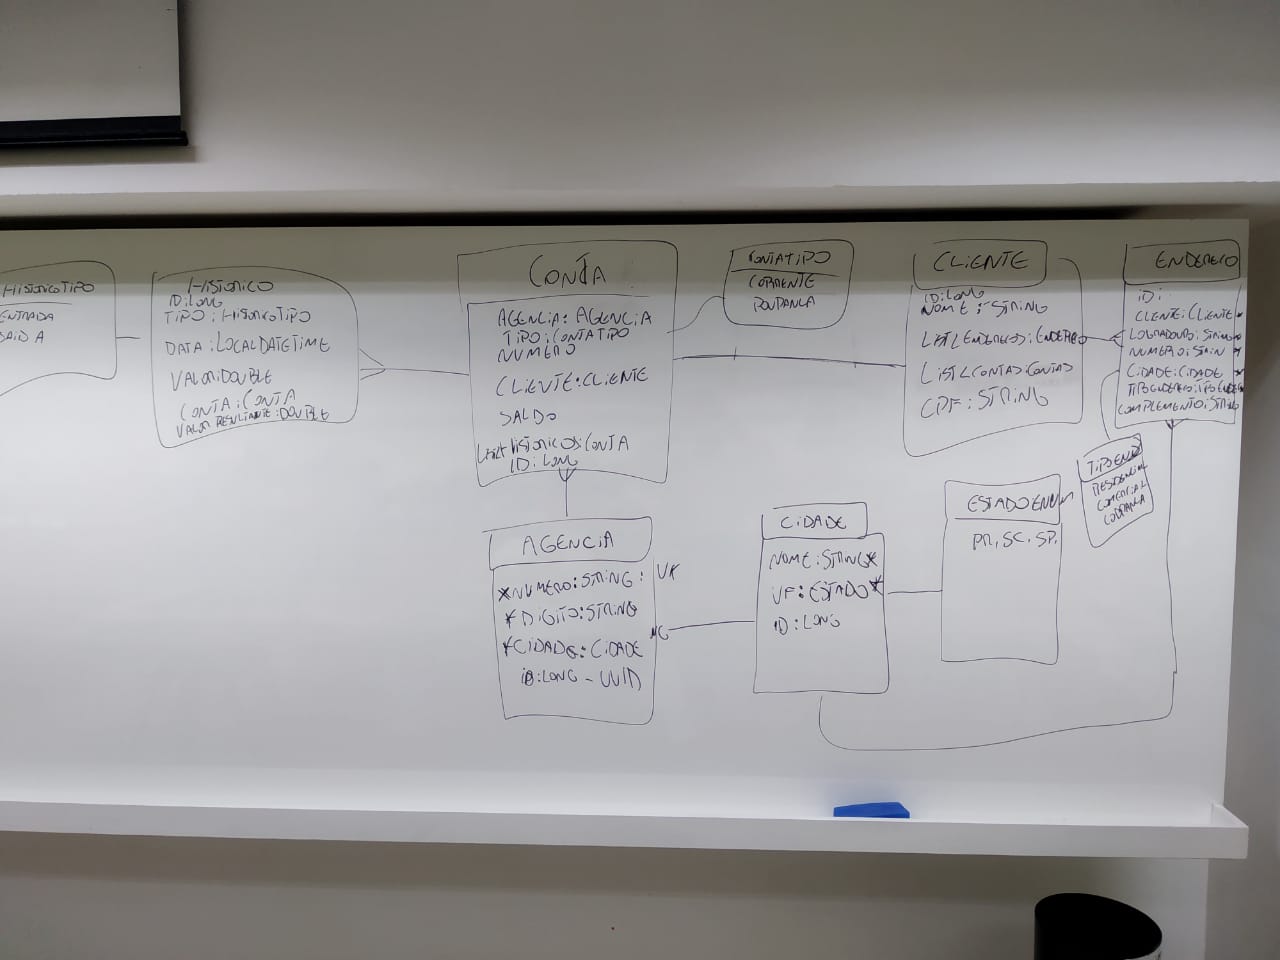 HISTORICO TIPO
ENTRADA
SAIDA
HISTORICO
ID:LONG
TIPO:HISTORICOTIPO
DATA:LOCALDATETIME
VALOR:DOUBLE
CONTA:CONTA
VALOR RESULTANTE:DOUBLE
CONTA
AGENCIA:AGENCIA
TIPO:CONTATIPO
NUMERO
CLIENTE:CLIENTE
SALDO
HISTORICOS:CONTA
ID:LONG
CONTATIPO
CORRENTE
POUPANCA
CLIENTE
ID:LONG
NOME:STRING
LIST<ENDERECOS:ENDERECO
LIST<CONTAS:CONTAS
CPF:STRING
ENDERECO
ID:
CLIENTE:CLIENTE*
LOGRADOURO:STRING*
NUMERO:STRIN*
CIDADE:CIDADE*
COMPLEMENTO:STRING
TIPOEND
RESIDENCIAL
COMERCIAL
COBRANCA
AGENCIA
*NUMERO:STRING: UK
*DIGITO:STRING
*CIDADE:CIDADE
ID:LONG - UUID
CIDADE
NOME:STRING*
UF:ESTADO*
ID:LONG
ESTADOENUM
PR, SC, SP.